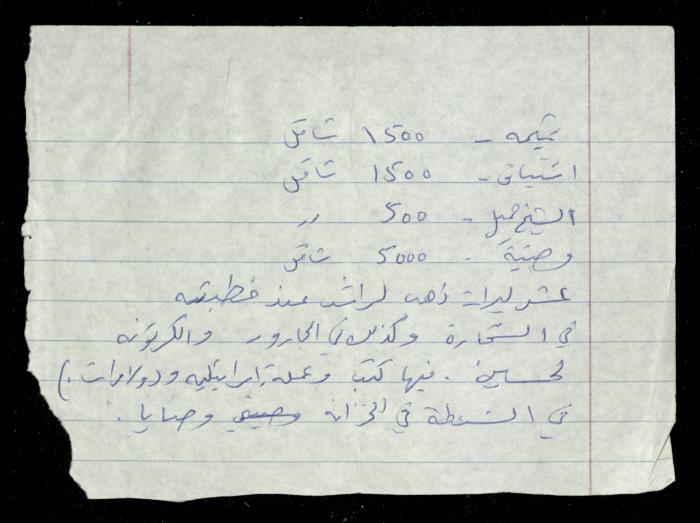 - 1500 شاقل
اشتياق - 1500 شاقل
الشيخ جميل - 500 //
وصيتي - 5000 شاقل
عشر ليرات ذهب لراشد عند خطبته
في السحارة وكذلك في الجارور والكرتونه
لحسين. فيها كتب وعملة إسرائيليه ودولارات.)
في الشنطة في الخزانه وصيتي وصايا.